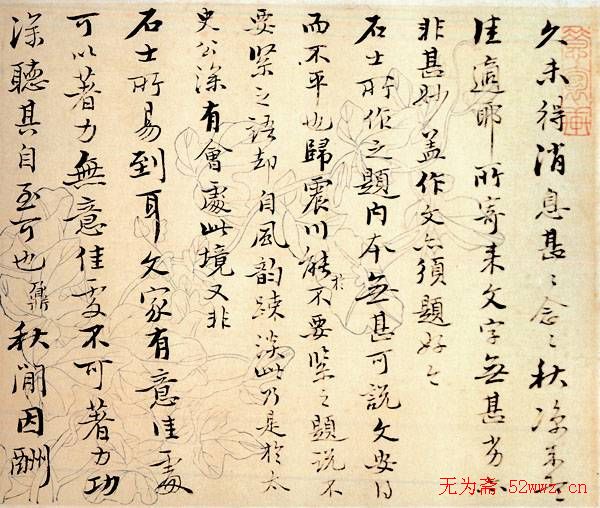 久未得消息甚〻念〻秋涼来
佳適耶所寄来文字無甚劣亦
非甚妙蓋作文亦須題好今
石士所作之題内本無甚可說文安得
而不平也歸震川能於不要緊之題說不
要緊之語却自風韵疎淡此乃是於太
史公深有會處此境又非
石士所易到耳文家有意佳處
可以著力無意佳處不可著力功
深聽其自至可也鼐秋間因酬
无为斋·52wwz.cn